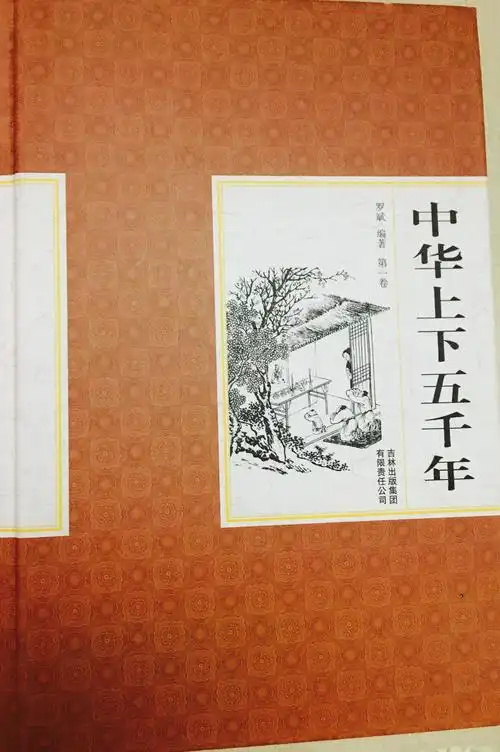 中华上下五千年
罗斌 编著 第一卷
吉林出版集团
有限责任公司